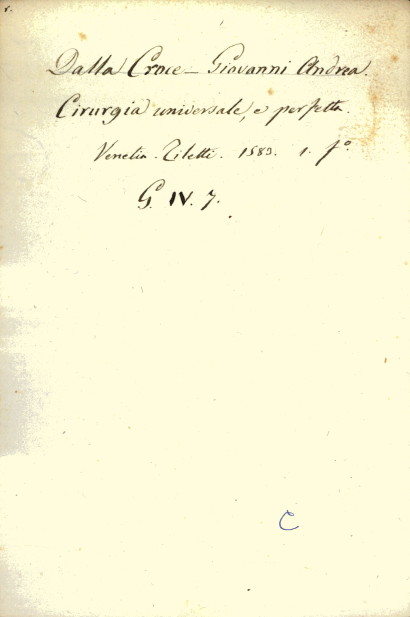 Dalla Croce – Giovanni Andrea.
Cirurgia universale, e perfetta.
Venetia. Ziletti. 1583. 1. fº.
G. IV. 7.
C